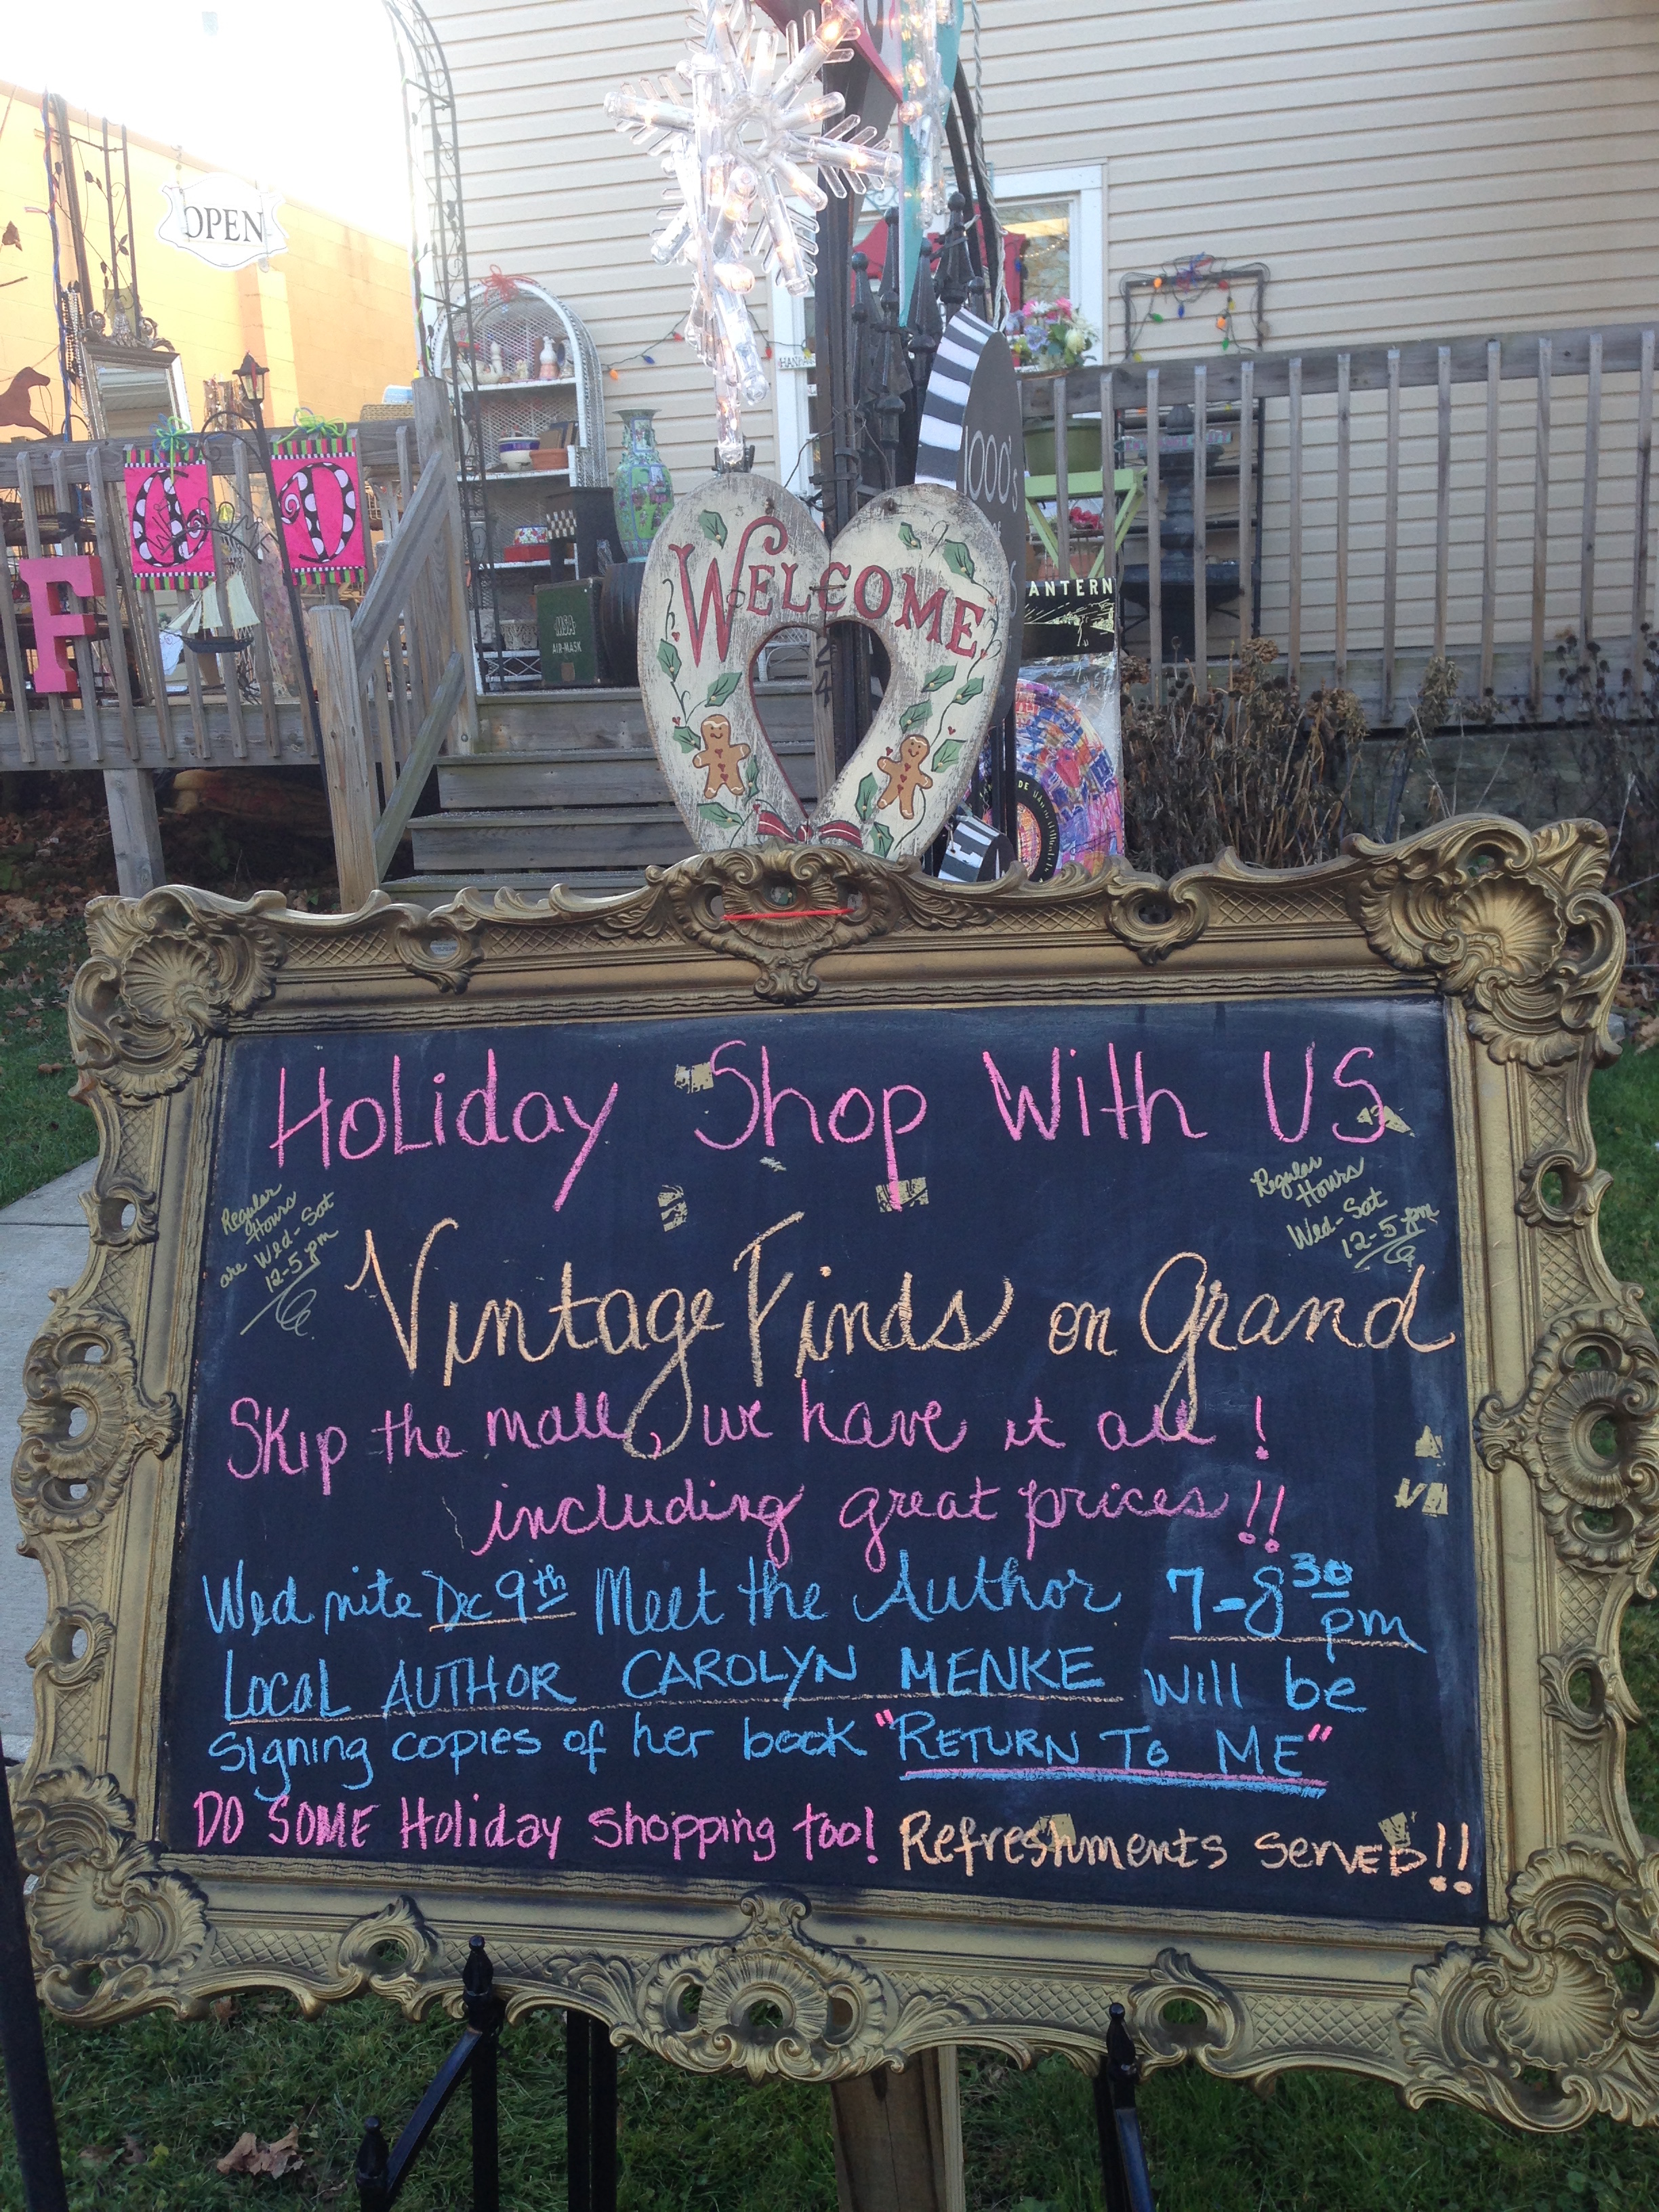 OPEN
F
1000's
WELCOME
ANTERN
24
MSA
AIR-MASK
Holiday Shop With US
Regular
Hours
are Wed-Sat
12-5pm
Regular
Hours
Wed-Sat
12-5pm
Vintage Finds on Grand
Skip the mall, we have it all!
including great prices!!
Wed nite Dec 9th Meet the Author 7-8 30 pm
Local AUTHOR CAROLYN MENKE will be
signing copies of her book "RETURN To ME"
DO SOME Holiday shopping too! Refreshments SERVED!!